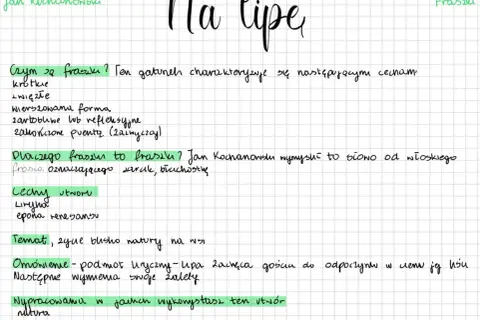 Jan Kochanowski Fraszki
Na lipę
Czym są fraszki? Ten gatunek charakteryzuje się następującymi cechami
krótkie
zwięzłe
wierszowana forma
żartobliwe lub refleksyjne
zakończone puentą (zazwyczaj)
Dlaczego fraszki to fraszki? Jan Kochanowski wymyślił to słowo od włoskiego
frasca oznaczającego żarcik, błachostkę
Cechy utworu
Liryka
epoka renesansu
Temat, życie blisko natury na wsi
Omówienie - podmiot liryczny - lipa zachęca gościa do odpoczynku w cieniu jej liści
Następnie wymienia swoje zalety.
Wypracowania w jakich wykorzystasz ten utwór
natura